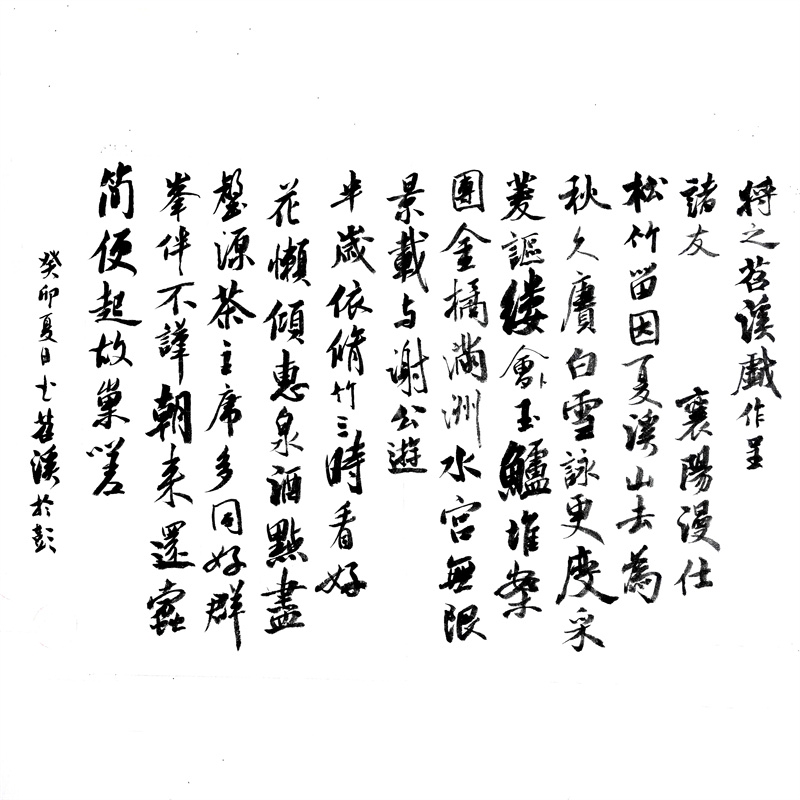 将之苕溪戲作呈
諸友 襄陽漫仕
松竹留因夏溪山去為
秋久賡白雪詠更度采
菱謳縷會卜玉鱸堆案
團金橘滿洲水宫無限
景載与謝公遊
半歲依脩竹三時看好
花懶傾惠泉酒點盡
壑源茶主席多同好群
峯伴不譁朝来還蠹
简便起故巢嗟
癸卯夏日 苕溪於彭